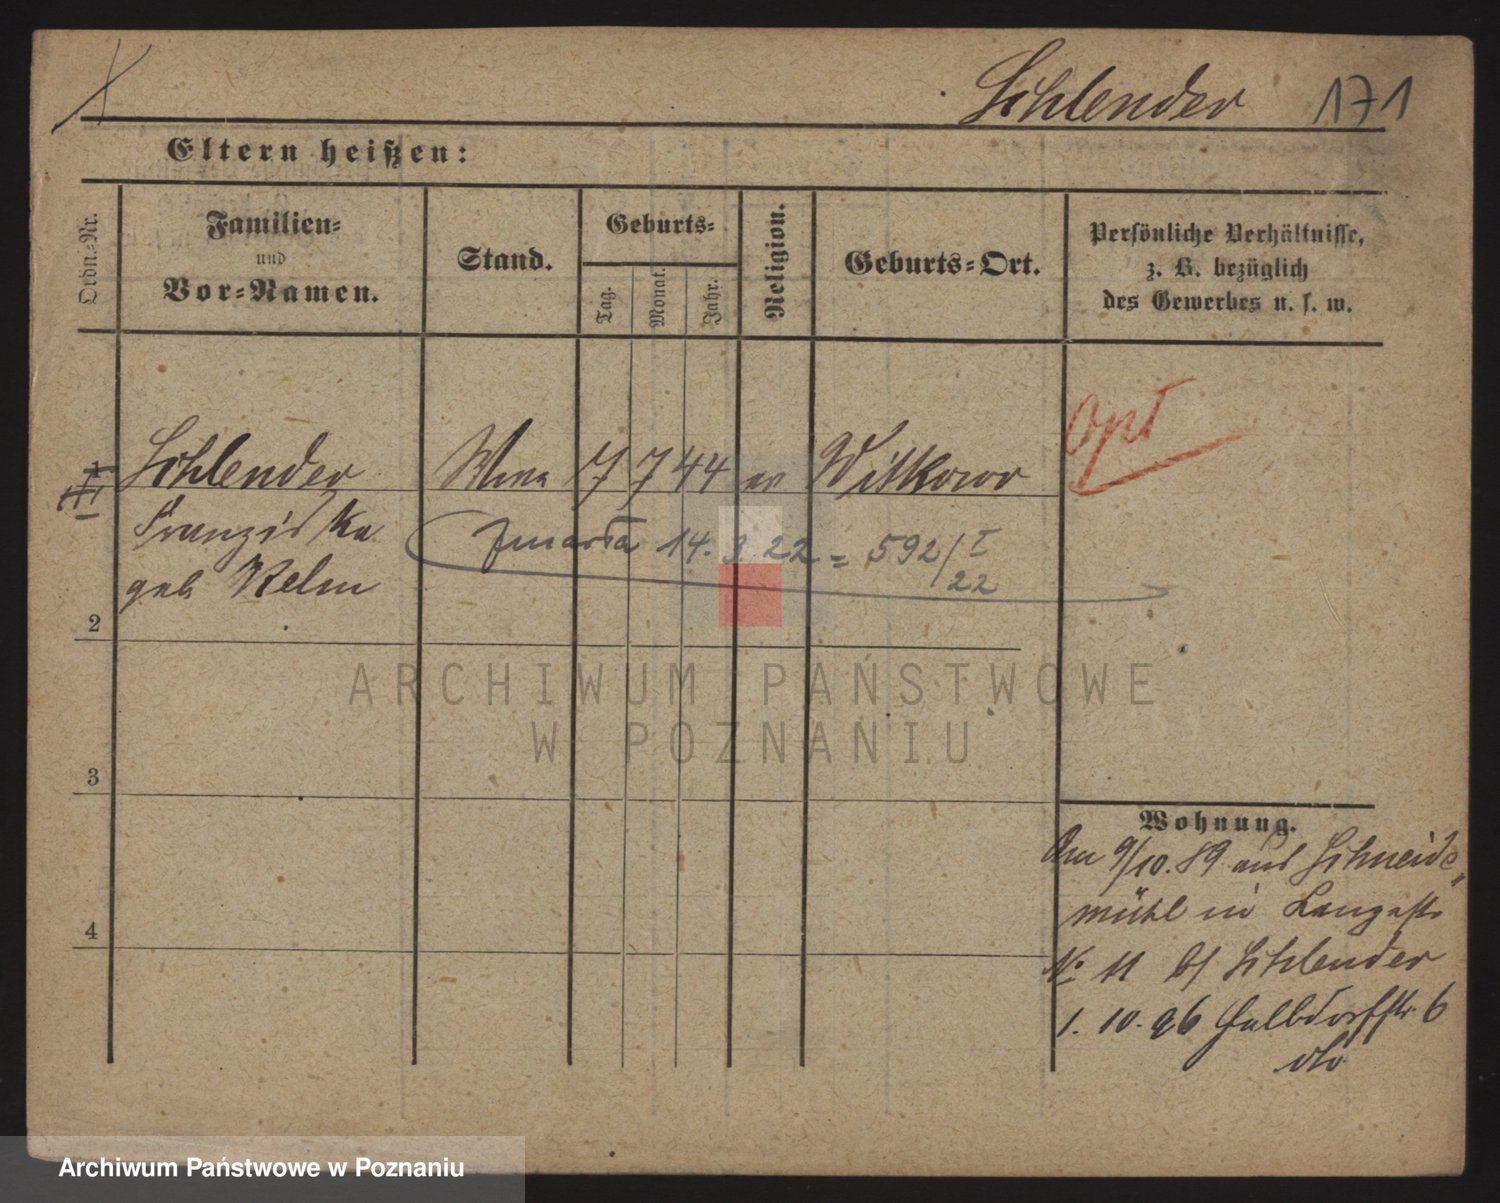 Schlender 171
Eltern heißen:
Ordn.-Nr.
Familien-
und
Vor-Namen.
Stand.
Geburts-
Tag.
Monat.
Jahr.
Religion.
Geburts-Ort.
Persönliche Verhältnisse,
z. B. bezüglich
des Gewerbes u. s. w.
Opt
1 Schlender Wwe 17 7 44 ev Witkowo
Franziska
geb Kelm
zmarła 14. 3. 22 = 592/I
22
2
3
4
ARCHIWUM PAŃSTWOWE
W POZNANIU
Wohnung.
Am 9/10. 89 aus Schneide„
mühl in Langestr
No 11 b/ Schlender
1. 10. 96 Halbdorfstr. 6
Archiwum Państwowe w Poznaniu